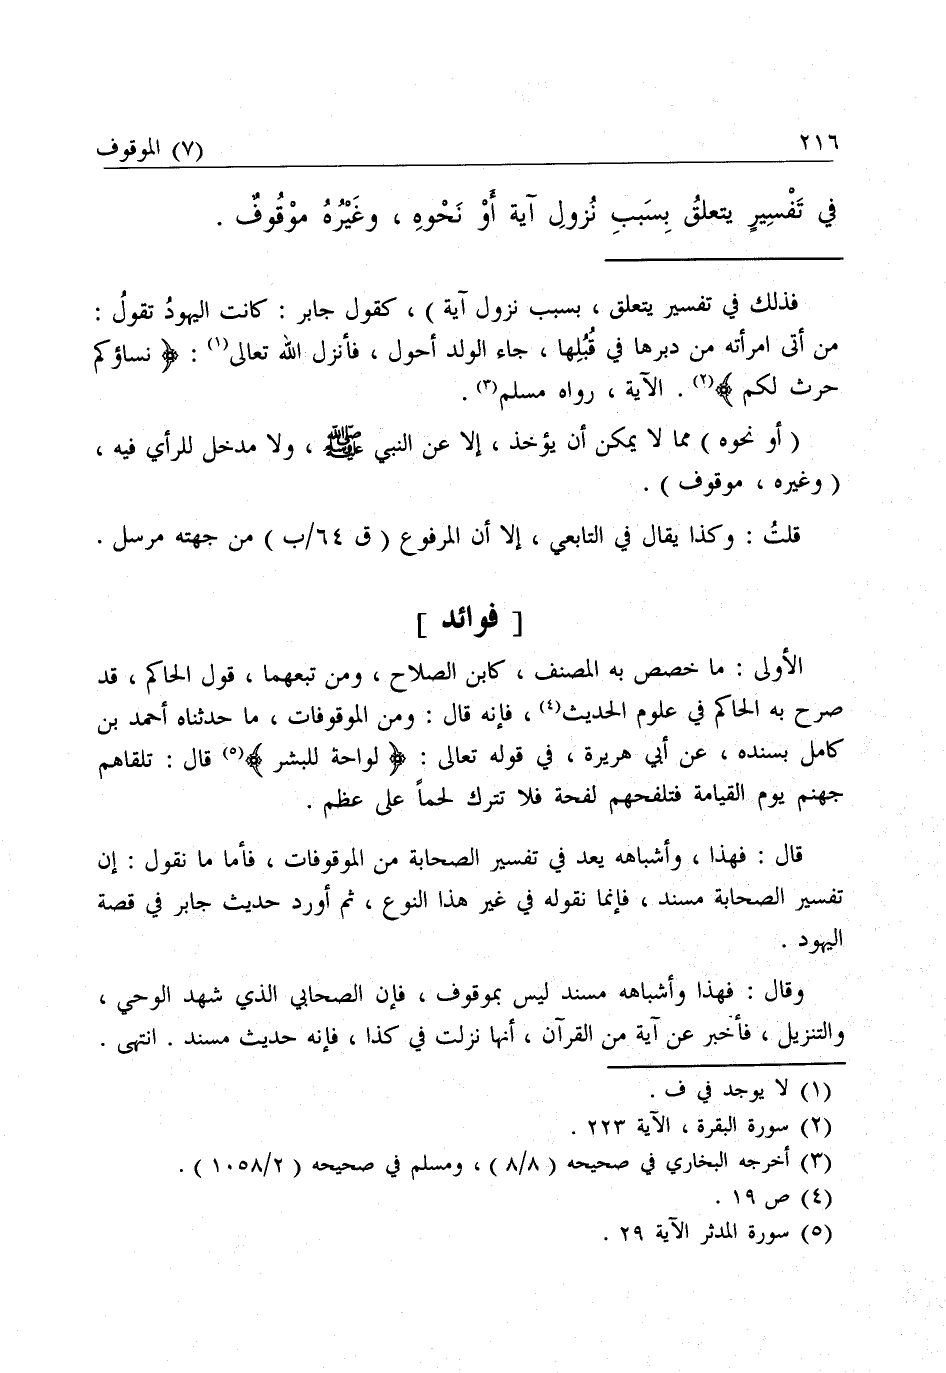 ٢١٦
(٧) الموقوف
في تَفْسِيرٍ يتعلقُ بِسَببِ نُزولِ آية أَوْ نَحْوِهِ ، وغَيْرُهُ موْقُوفٌ .
فذلك في تفسير يتعلق ، بسبب نزول آية ) ، كقول جابر : كانت اليهودُ تقولُ :
من أتى امرأته من دبرها في قُبُلِها ، جاء الولد أحول ، فأنزل الله تعالى(١) : ﴿ نساؤكم
حرث لكم ﴾(٢) . الآية ، رواه مسلم(٣) .
( أو نحوه ) مما لا يمكن أن يؤخذ ، إلا عن النبي ﷺ ، ولا مدخل للرأي فيه ،
( وغيره ، موقوف ) .
قلتُ : وكذا يقال في التابعي ، إلا أن المرفوع ( ق ٦٤/ب ) من جهته مرسل .
[ فوائد ]
الأولى : ما خصص به المصنف ، كابن الصلاح ، ومن تبعهما ، قول الحاكم ، قد
صرح به الحاكم في علوم الحديث(٤) ، فإنه قال : ومن الموقوفات ، ما حدثناه أحمد بن
كامل بسنده ، عن أبي هريرة ، في قوله تعالى : ﴿ لواحة للبشر ﴾(٥) قال : تلقاهم
جهنم يوم القيامة فتلفحهم لفحة فلا تترك لحماً على عظم .
قال : فهذا ، وأشباهه يعد في تفسير الصحابة من الموقوفات ، فأما ما نقول : إن
تفسير الصحابة مسند ، فإنما نقوله في غير هذا النوع ، ثم أورد حديث جابر في قصة
اليهود .
وقال : فهذا وأشباهه مسند ليس بموقوف ، فإن الصحابي الذي شهد الوحي ،
والتنزيل ، فأخبر عن آية من القرآن ، أنها نزلت في كذا ، فإنه حديث مسند . انتهى .
(١) لا يوجد في ف .
(٢) سورة البقرة ، الآية ٢٢٣ .
(٣) أخرجه البخاري في صحيحه ( ٨/٨ ) ، ومسلم في صحيحه ( ١٠٥٨/٢ ) .
(٤) ص ١٩ .
(٥) سورة المدثر الآية ٢٩ .